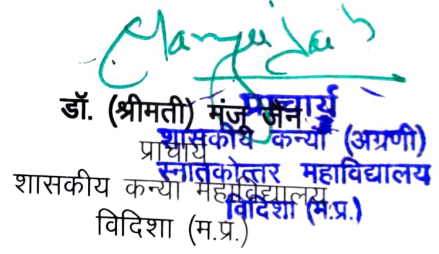 Manju Jain
डॉ. (श्रीमती) मंजू जैन
प्राचार्य
शासकीय कन्या महाविद्यालय
विदिशा (म.प्र.)
प्राचार्य
शासकीय कन्या (अग्रणी)
स्नातकोत्तर महाविद्यालय
विदिशा (म.प्र.)